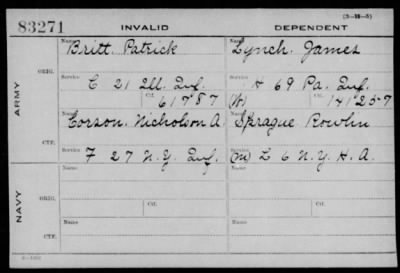 (3—18—5)
83271 INVALID DEPENDENT
ARMY
ORIG.
Name Britt, Patrick Name Lynch, James
Service C 21 Ill. Inf. Service H 69 Pa. Inf.
Ctf. 61787 (W) Ctf. 141257
CTF.
Name Corson, Nicholson A. Name Sprague Rowlin
Service F 27 N.Y. Inf. Service (M) L 6 N.Y. H.A.
NAVY
ORIG.
Name Name
Service Ctf. Service Ctf.
CTF.
Name Name
Service Service